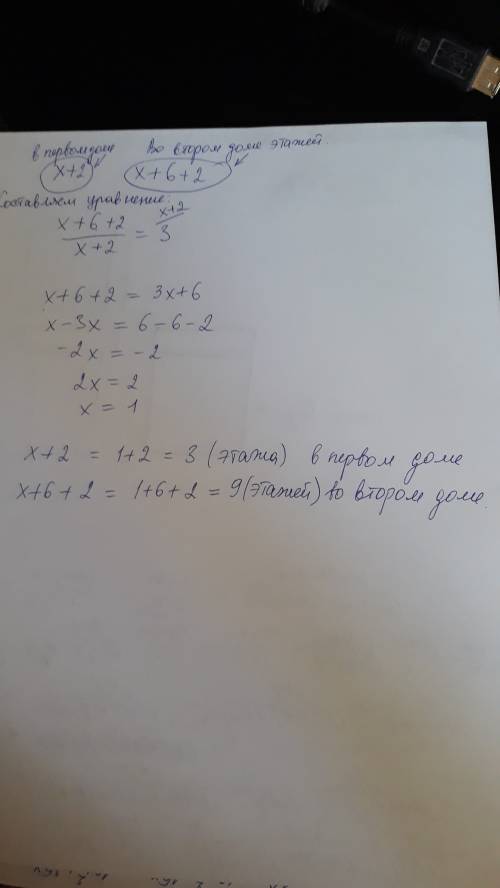 в первом доме Во втором доме этажей.
x+2 x+6+2
Составляем уравнение:
x+6+2 x+2
/ x+2 = 3
x+6+2 = 3x+6
x-3x = 6-6-2
-2x = -2
2x = 2
x = 1
x+2 = 1+2 = 3 (этажа) в первом доме
x+6+2 = 1+6+2 = 9 (этажей) во втором доме.